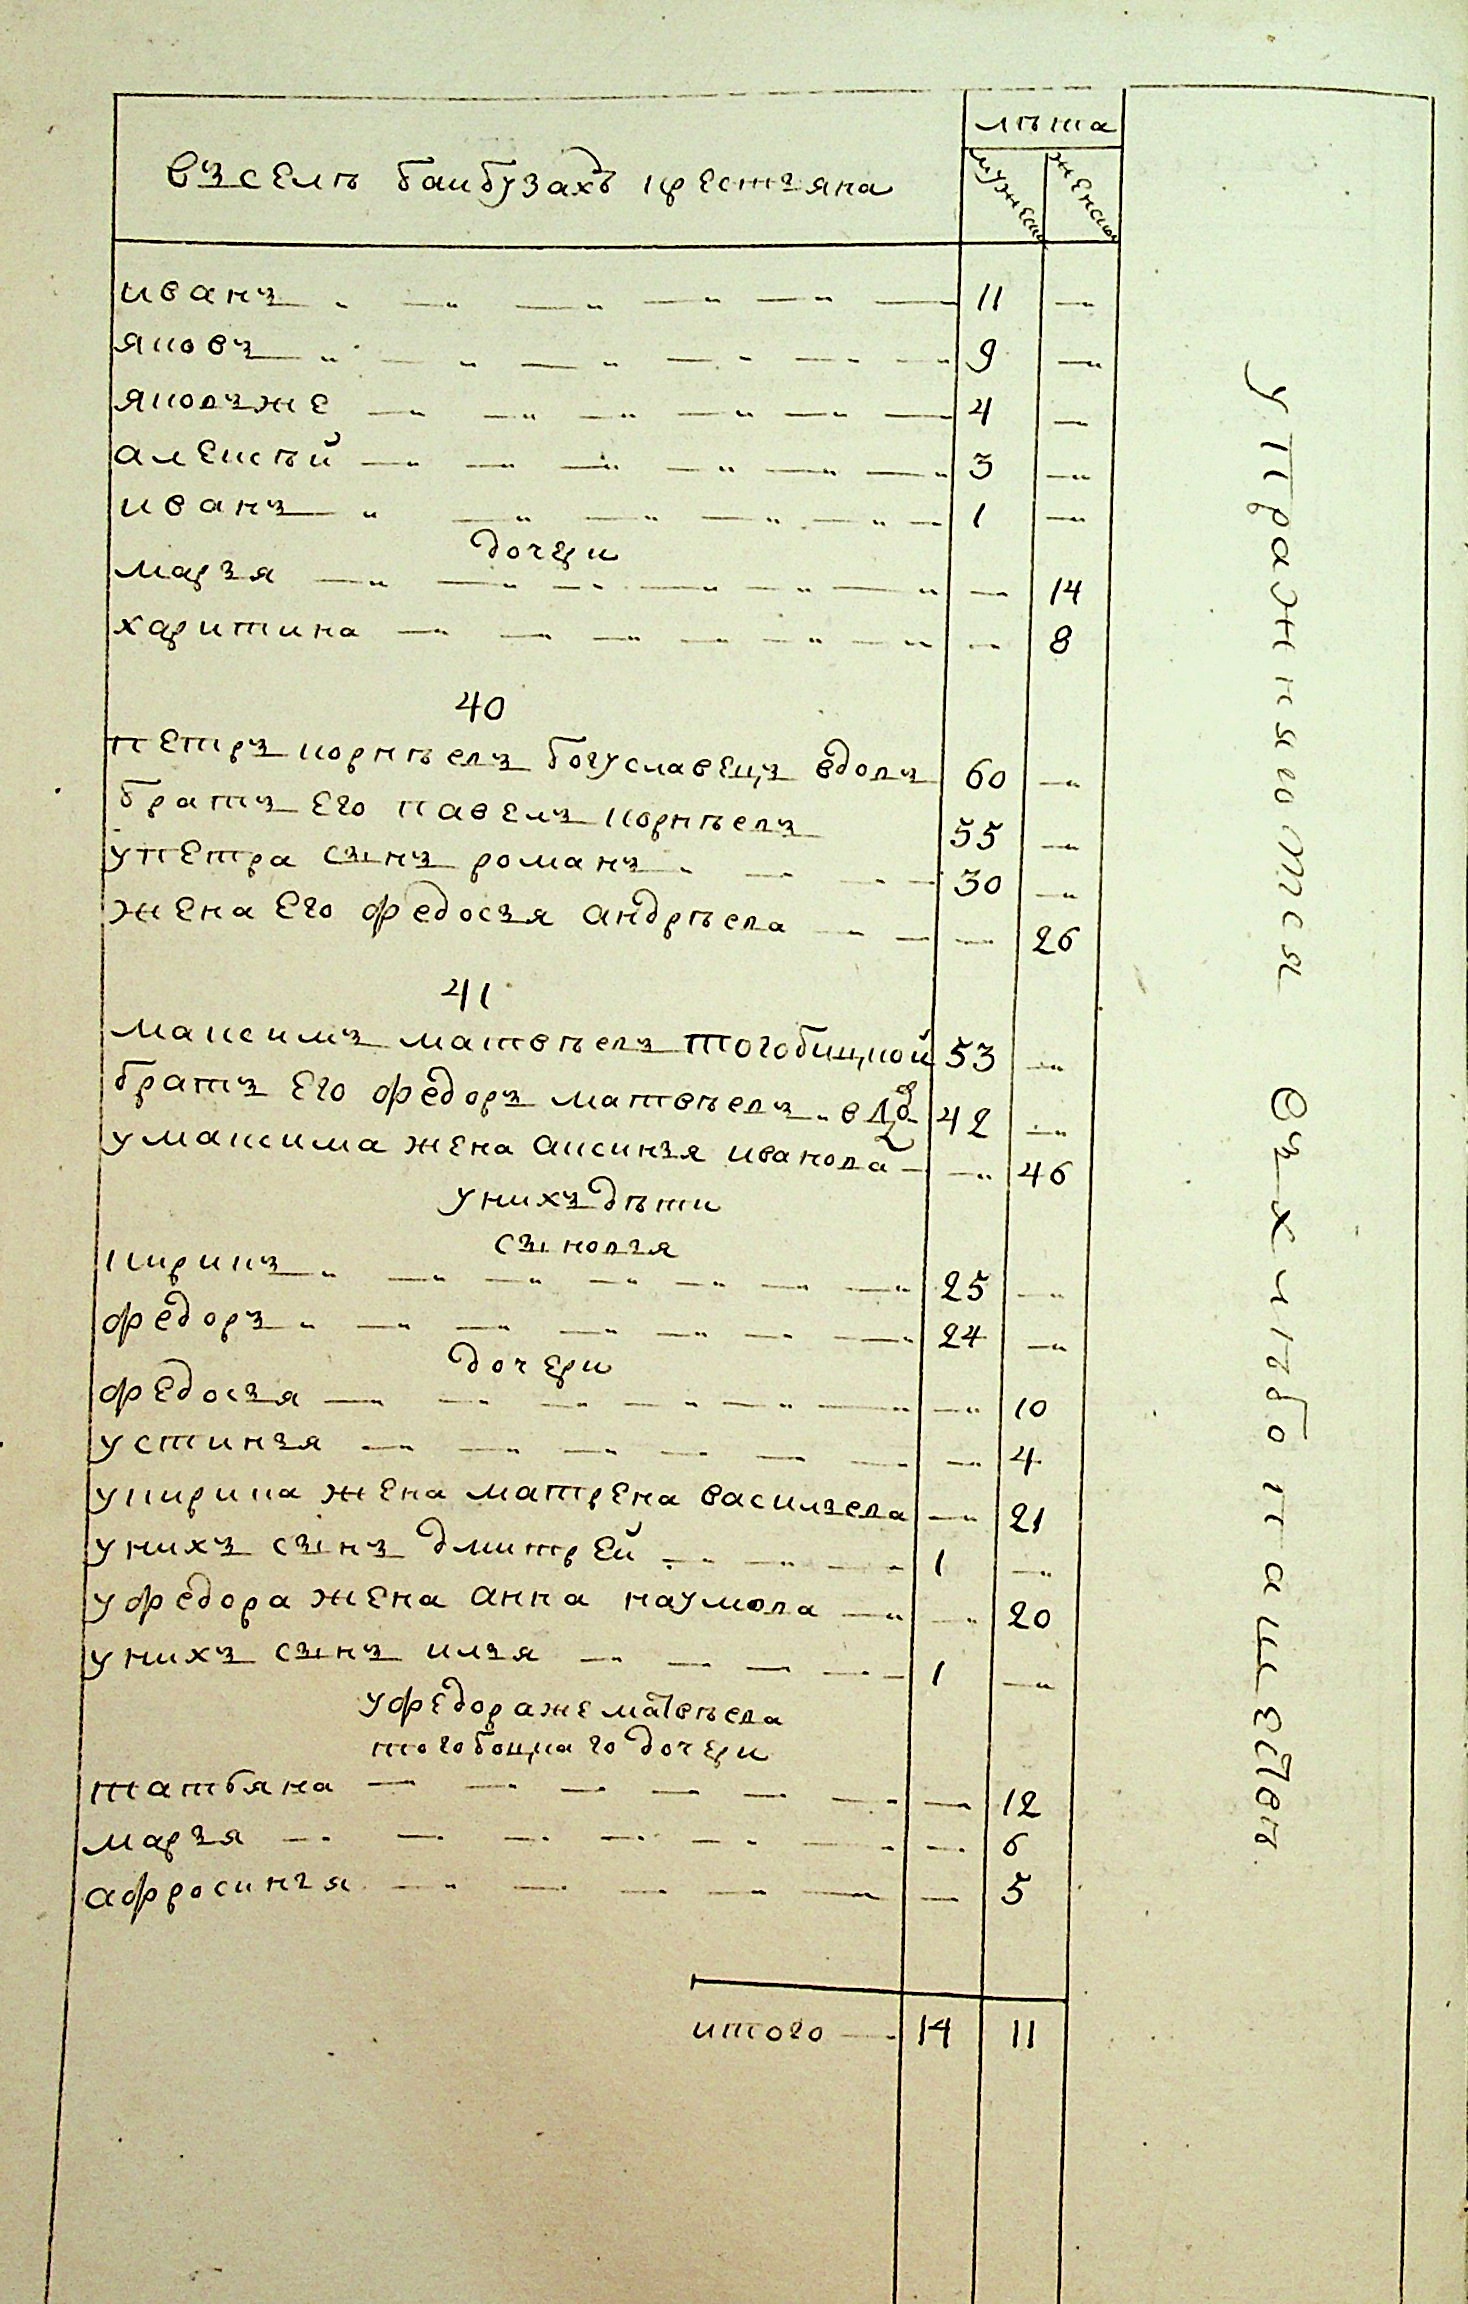 лѣта
въ селѣ баибузахъ крестьяна
мужеск
женско
иванъ 11 —
яковъ 9 —
яковъже 4 —
алексѣй 3 —
иванъ 1 —
дочери
марья — 14
харитина — 8
40
петръ корнѣевъ богуславецъ вдовъ 60 —
братъ его павелъ корнѣевъ 55 —
упетра сынъ романъ 30 —
жена его федосья андрѣева — 26
41
максимъ матвѣевъ тогобицкой 53 —
братъ его федоръ матвѣевъ 42 —
умаксима жена аксинья иванова — 46
унихъ дѣти
сыновья
кирикъ 25 —
федоръ 24 —
дочери
федосья — 10
устинья — 4
укирика жена матрена васильева — 21
унихъ сынъ дмитрей 1 —
уфедора жена анна наумова — 20
унихъ сынъ илья 1 —
уфедораже матвѣева
тогобоцкаго дочери
татьяна — 12
марья — 6
афросинья — 5
итого 14 11
упражняются въ хлѣбопашествѣ